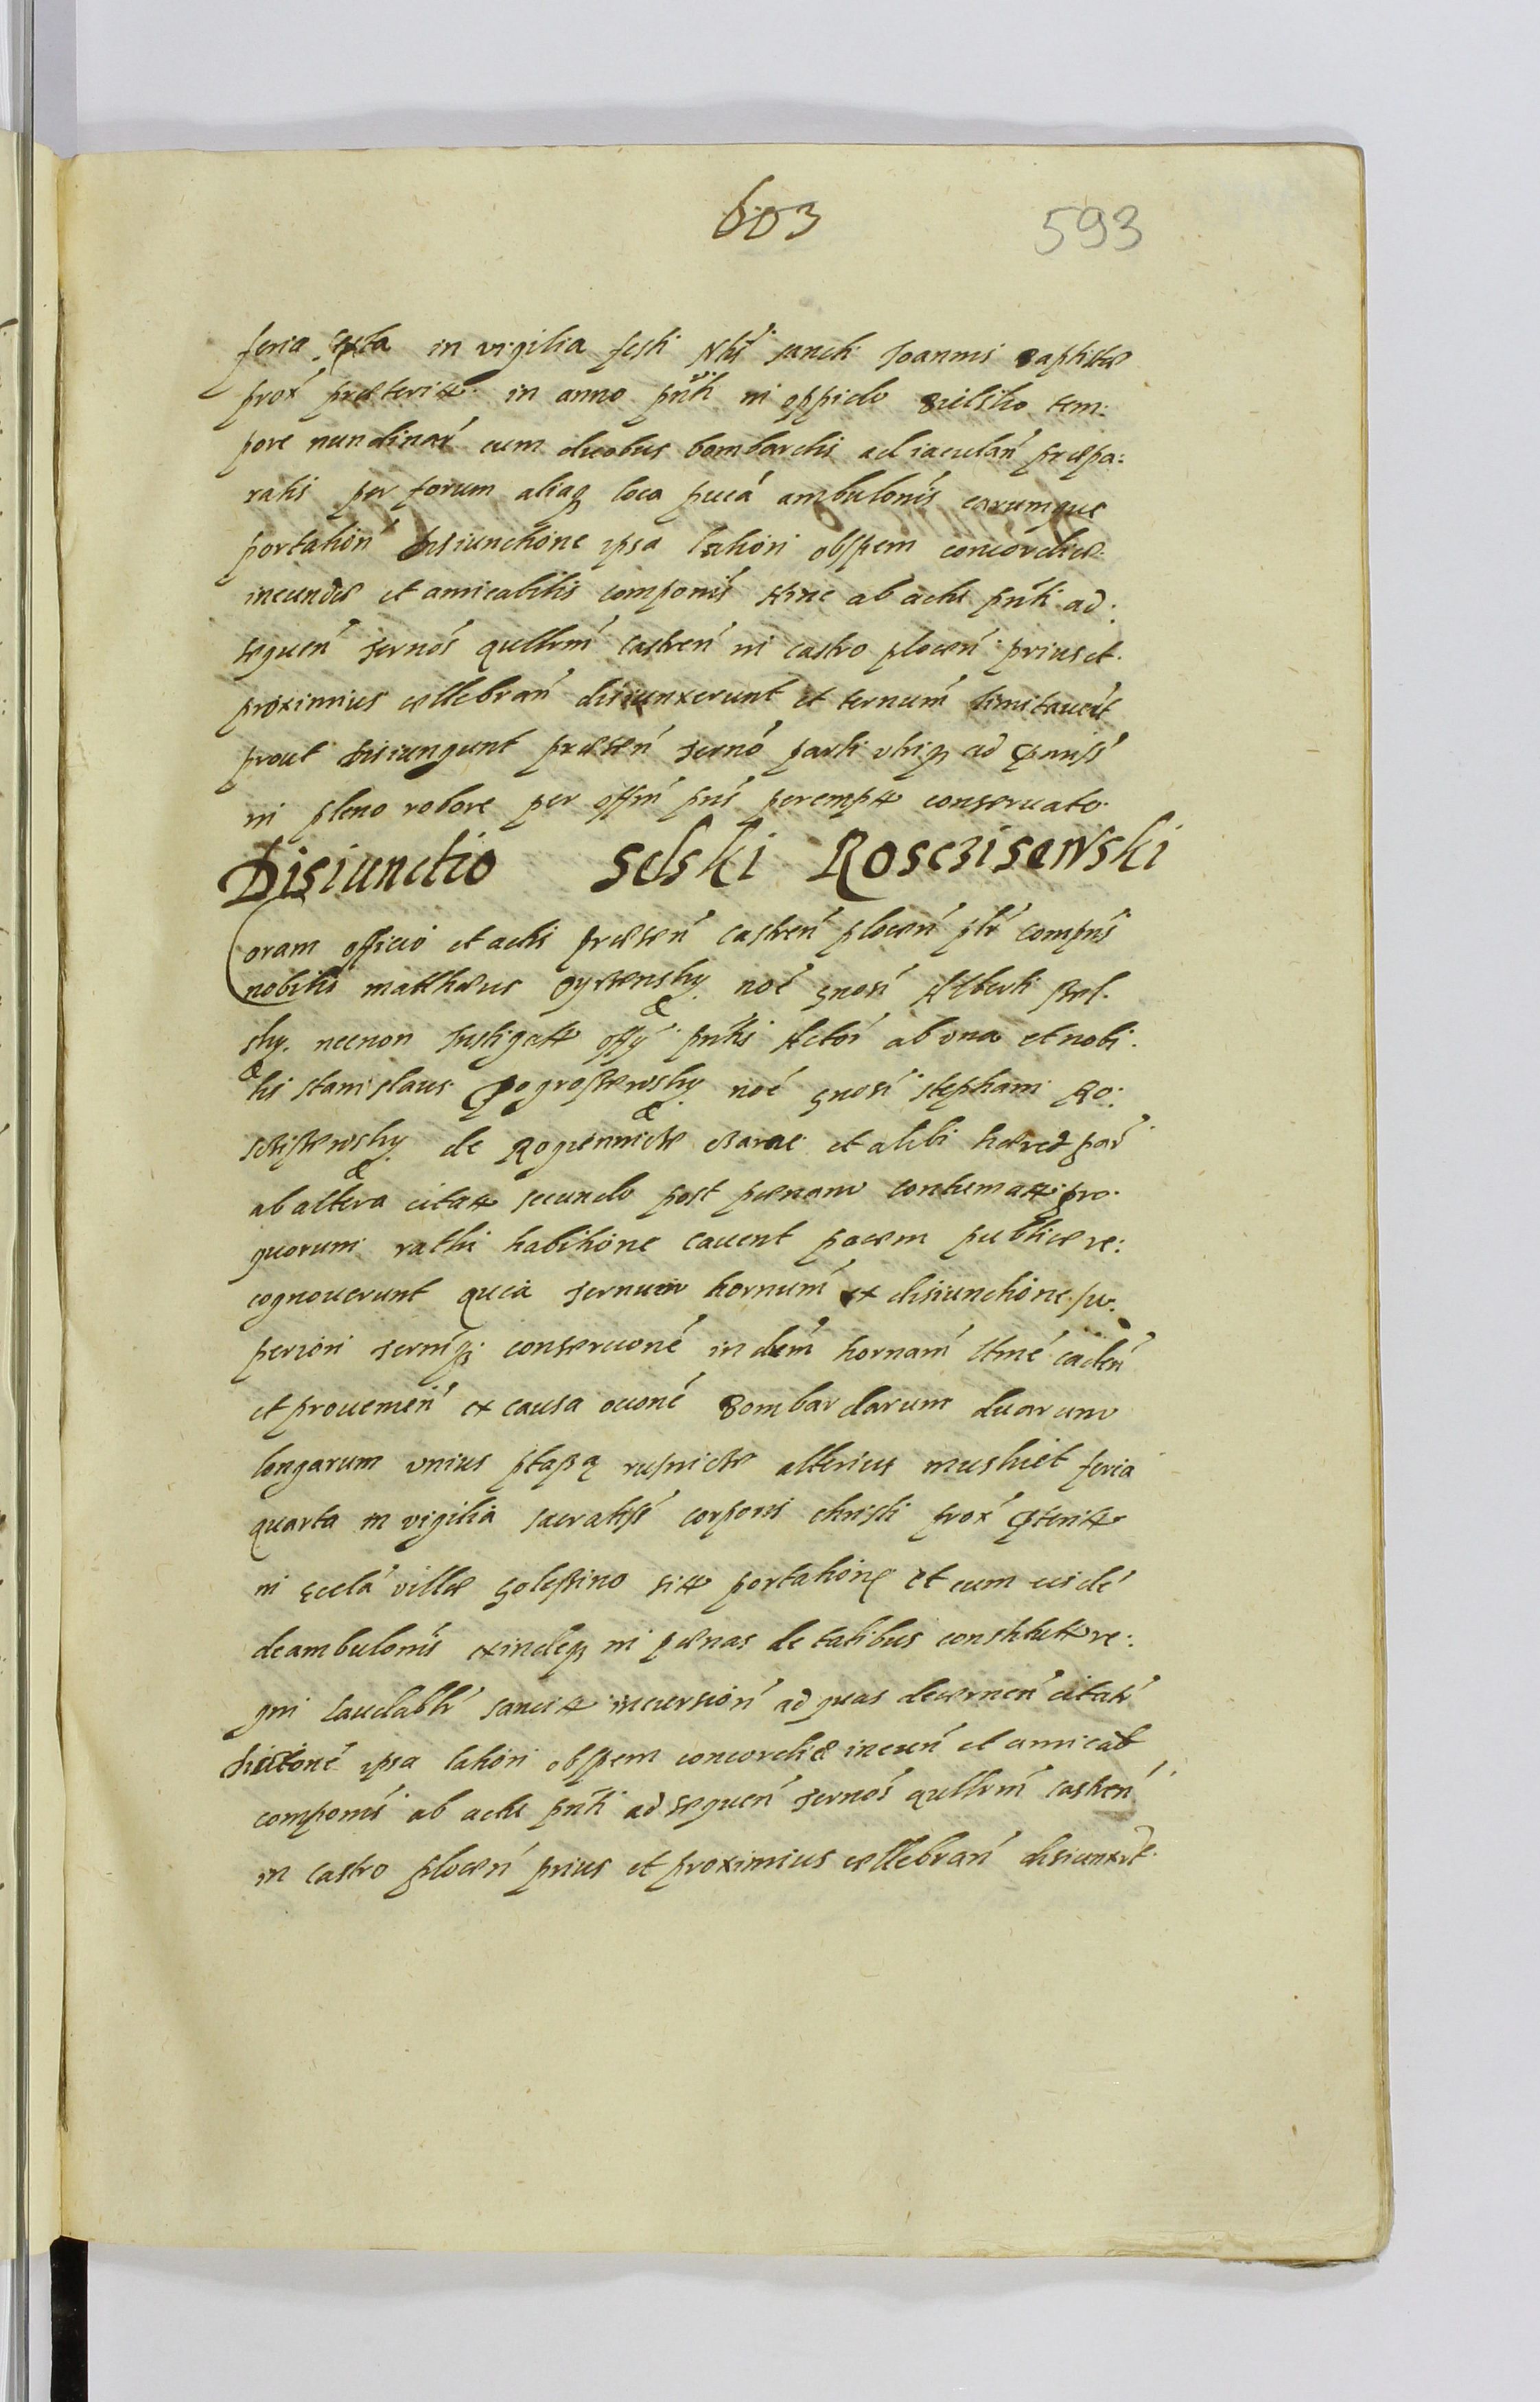 603 593
feria sexta in vigilia festi Nts sancti Joannis Baptistæ
prox præteritæ in anno pnti in oppido Bielsko tem:
pore nundinar cum duobus bombardis ad iaculan præpa:
ratis per forum aliaq loca puca ambulonis earumque
portation disiunctione ipsa lation obspem concordiæ
ineundæ et amicabilis componis hinc ab actis pnti ad:
sequen ternos qullrm castren in castro plocen prius et
proximius cellebran disiunxerunt et ternum limitauert
prout disiungunt præsen terno parti vtriq ad
in pleno robore per offm pns perempt conseruato
Disiunctio Selski Rosczisewski
Coram officio et actis præsen castren plocen plr compns
nobilis matthæus noe gnosi Alberti Sel
sky necnon Instigatt offy pntis Actor ab vna et nobi
lis stanislaus Pogroszewsky noe gnosi stephani Ro:
scziszewsky de et alibi hæred par
ab altera citatt secundo post pænam contumatt pro
quorum rathi habitione cauent pacem publice re:
cognouerunt quia ternum hornum ex disiunctione su
periori conseruone in diem hornam ltme caden
et prouenien ex causa Bombardarum duarum
longarum vnius rusnicze alterius muskiet feria
quarta in vigilia sacratiss corporis christi prox
in eccla villæ Goleszino portatione et cum eisde
deambulonis exindeq in pænas de talibus constitutt re:
gni laudablr sancitt incursion ad quas decernen citatt
ipsa lation obspem concordiæ ineun et amicab
componis ab actis pnti ad sequen ternos qullrm castren
in castro plocen prius et proximius cellebran disiunxrt